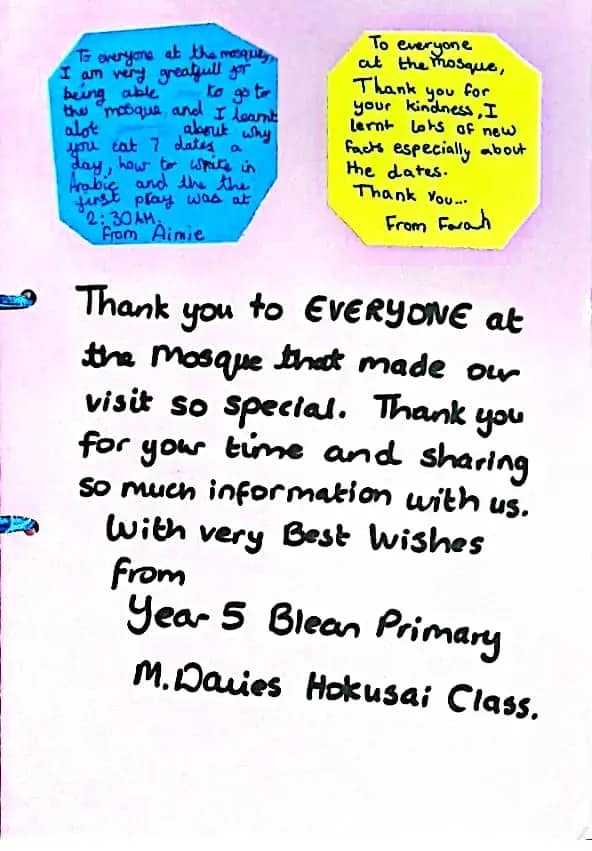 To everyone at the mosque,
I am very greatfull for
being able to go to
the mosque and I learnt
alot about why
you eat 7 dates a
day, how to write in
Arabic and the the
first pray was at
2:30AM.
from Aimie
To everyone
at the mosque,
Thank you for
your kindness, I
lernt lots of new
facts especially about
the dates.
Thank you...
From Farah
Thank you to EVERYONE at
the Mosque that made our
visit so special. Thank you
for your time and sharing
so much information with us.
With very Best Wishes
from
Year 5 Blean Primary
M. Davies Hokusai Class.